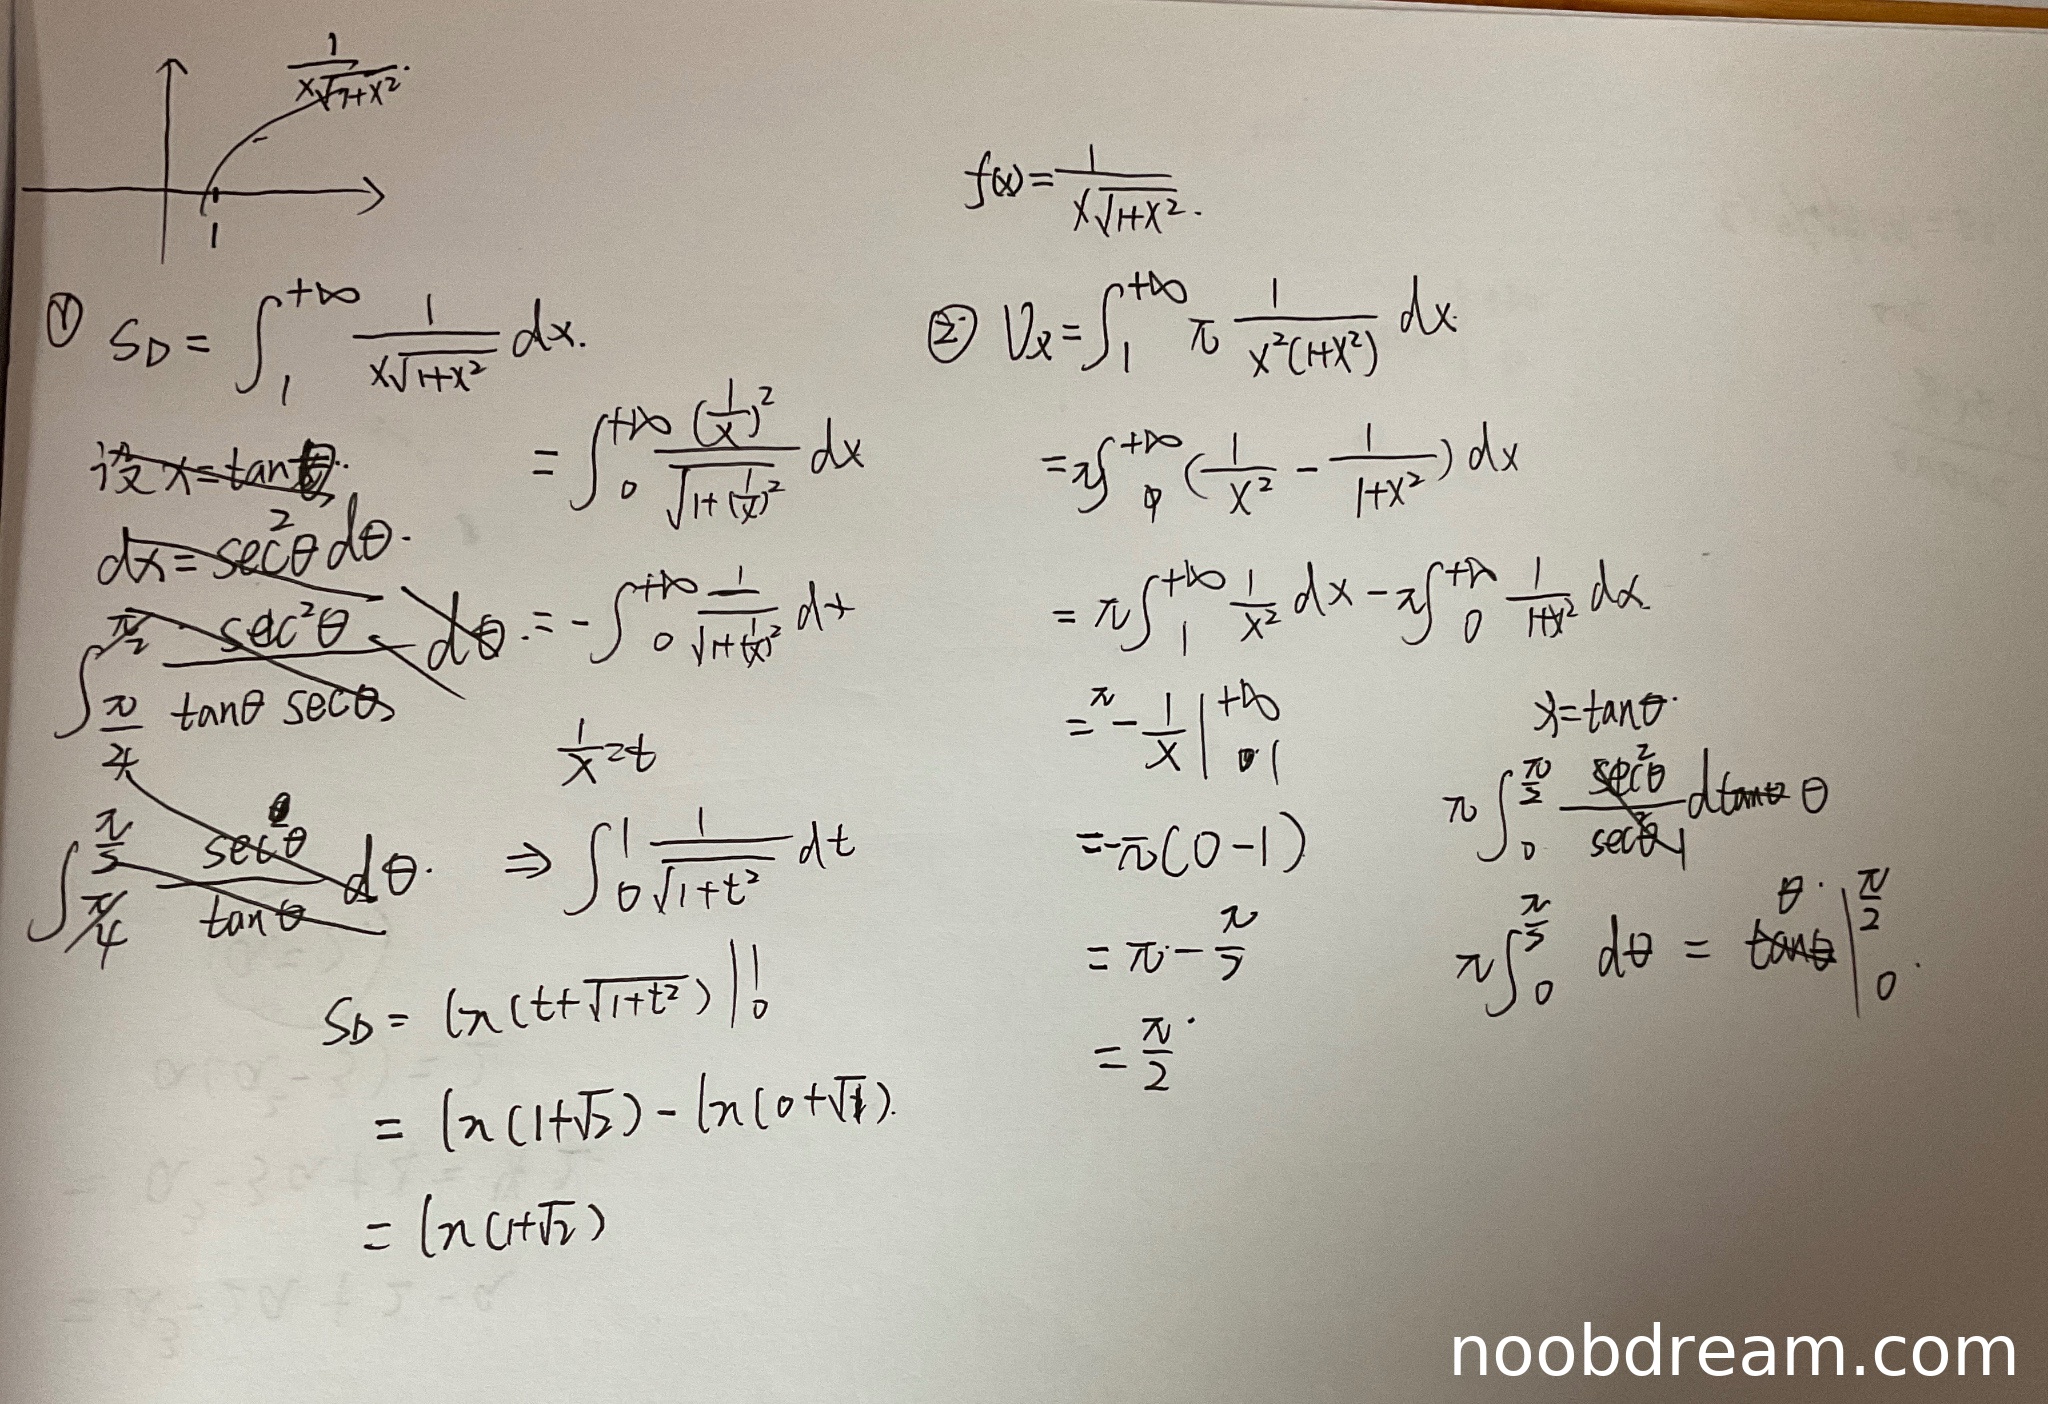 1/(x√(1+x²)).
1
① S_D = ∫_1^{+∞} 1/(x√(1+x²)) dx.
设 x = tanθ.
dx = sec²θ dθ.
∫_{π/4}^{π/2} sec²θ/(tanθ secθ) dθ.
∫_{π/4}^{π/2} secθ/tanθ dθ.
= ∫_0^{+∞} (1/x)²/√(1+(1/x)²) dx
= -∫_0^{+∞} 1/√(1+(1/x)²) d 1/x
1/x = t
⇒ ∫_0^1 1/√(1+t²) dt
S_D = ln(t+√(1+t²)) |_0^1
= ln(1+√2) - ln(0+√1).
= ln(1+√2)
f(x) = 1/(x√(1+x²)).
② V_x = ∫_1^{+∞} π 1/(x²(1+x²)) dx.
= π∫_0^{+∞} (1/x² - 1/(1+x²)) dx
= π∫_1^{+∞} 1/x² dx - π∫_0^{+∞} 1/(1+x²) dx
= π - 1/x |_1^{+∞}
= -π(0-1)
= π - π/2
= π/2.
x = tanθ.
π∫_0^{π/2} sec²θ/sec²θ dθ
π∫_0^{π/2} dθ = θ |_0^{π/2}.
noobdream.com